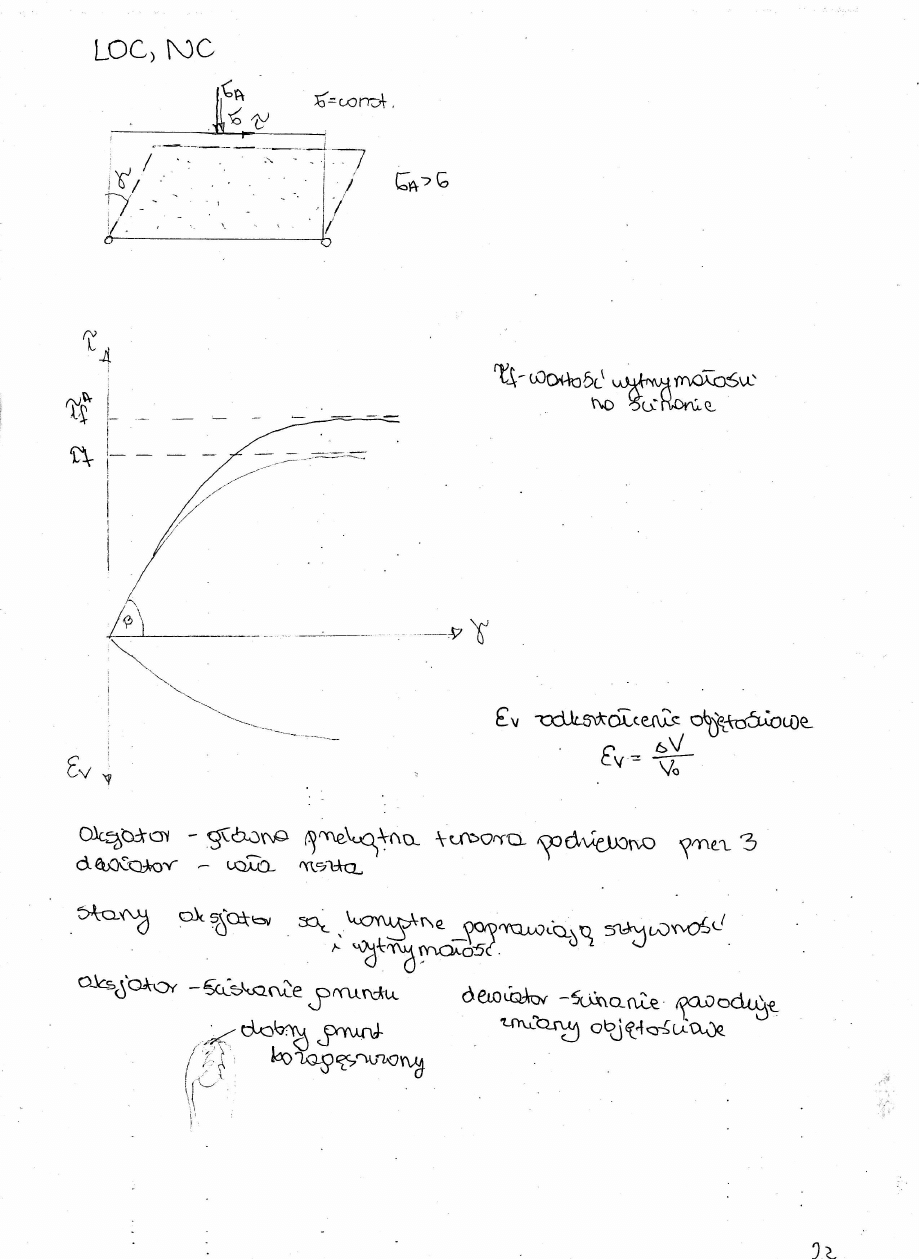 LOC, NC
σA
σ=const.
σ τ
γ
σA>σ
τ
τfA
τf-wartość wytrzymałości
na ścinanie
τf
β
γ
εv odkształcenie objętościowe
εv = ΔV/V0
εv
aksjator - główna przekątna tensora podzielona przez 3
dewiator - cała reszta
stany aksjator są korzystne poprawiają sztywność
i wytrzymałość.
aksjator - ściskanie gruntu
dewiator - ścinanie powoduje
zmiany objętościowe
dobry grunt
bo zagęszczony